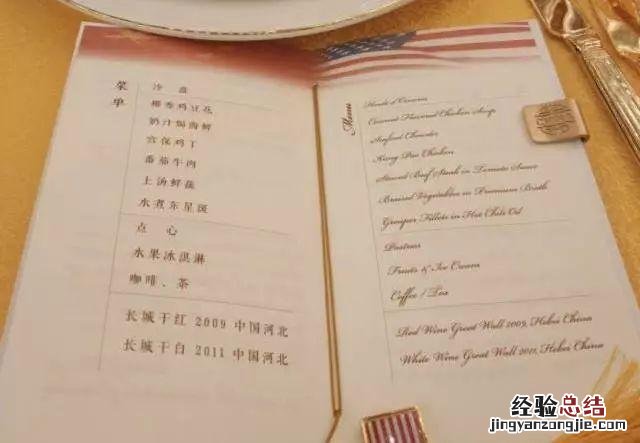 菜单
冷盘
椰香鸡豆花
奶汁焗海鲜
宫保鸡丁
番茄牛肉
上汤鲜蔬
水煮东星斑
点心
水果冰淇淋
咖啡、茶
长城干红 2009 中国河北
长城干白 2011 中国河北
Menu
Hors d'Oeuvres
Coconut Flavored Chicken Soup
Seafood Chowder
Kung Pao Chicken
Stewed Beef Steak in Tomato Sauce
Braised Vegetables in Premium Broth
Grouper Fillets in Hot Chili Oil
Pastries
Fruits & Ice Cream
Coffee / Tea
Red Wine Great Wall 2009, Hebei China
White Wine Great Wall 2011, Hebei China
经验总结
jingyanzongjie.com